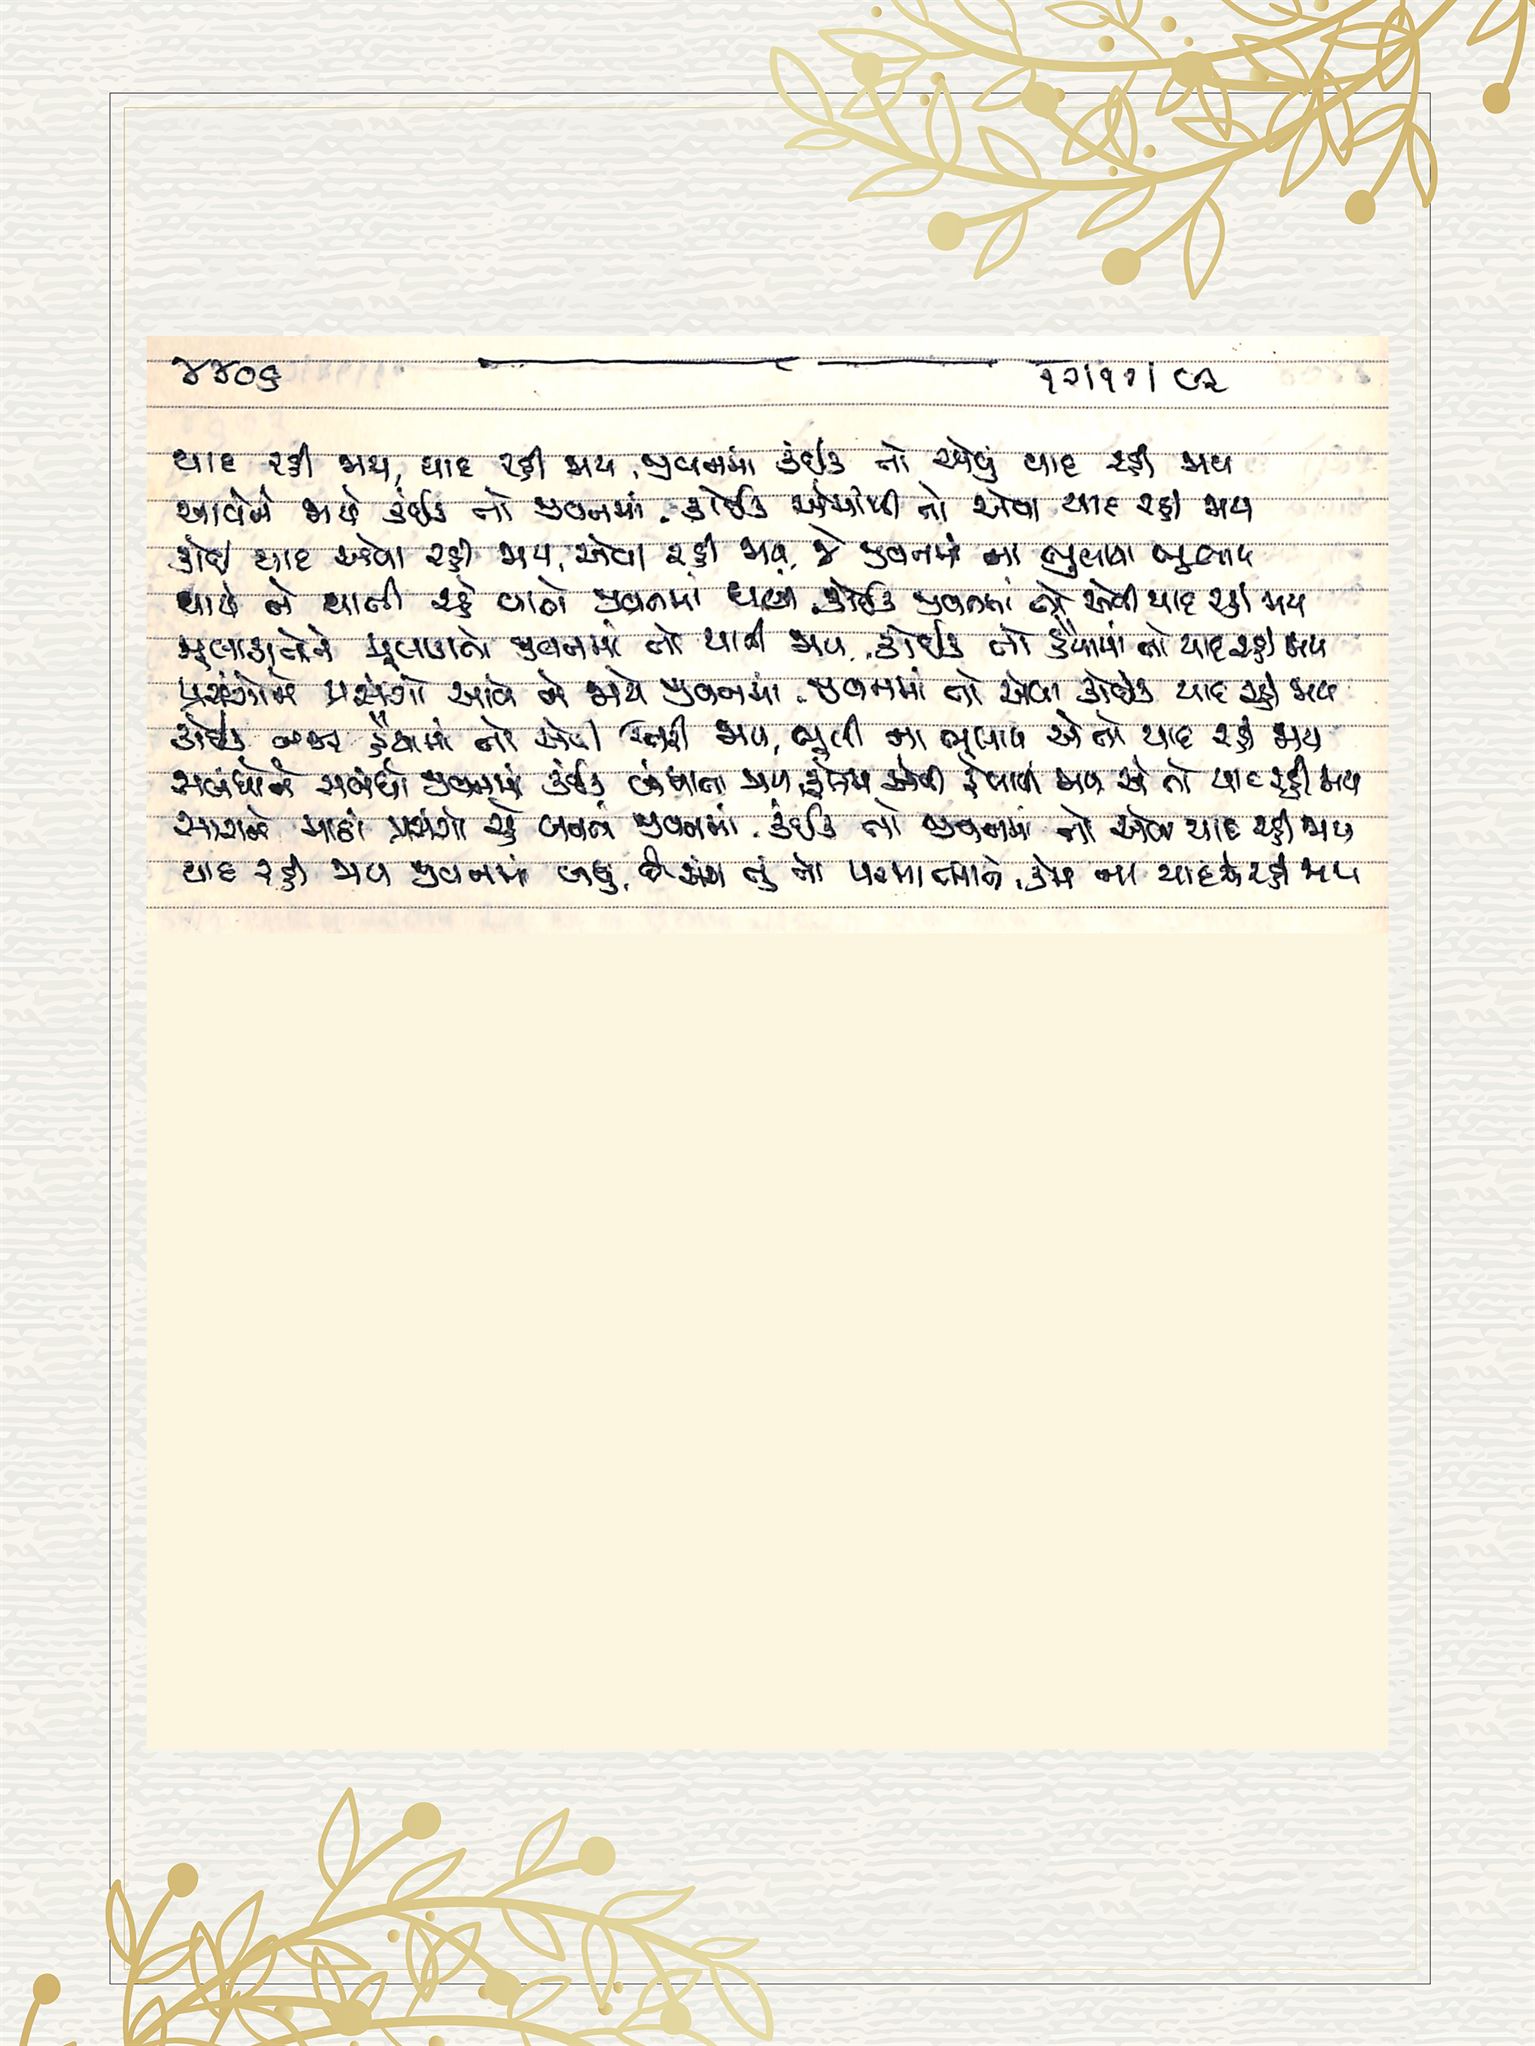 ૪૪૦૬ ૧૨/૧૨/૯૨
યાદ રહી જાય, યાદ રહી જાય, જીવનમાં કંઈક તો એવું યાદ રહી જાય
આવેને જાયે કંઈક તો જીવનમાં, કોઈક એમાંથી તો એવા યાદ રહી જાય
કોઈ યાદ એવી રહી જાય, એવી રહી જાય, જે જીવનમાં ના ભુલાય
થાયે ને થાતી રહે વાતો જીવનમાં ઘણી, કોઈક જીવનમાં તો એવી યાદ રહી જાય
મુલાકાતોને મુલાકાતો જીવનમાં તો થાતી જાય, કોઈક તો હૈયામાં તો યાદ રહી જાય
પ્રસંગોને પ્રસંગો આવે ને જાયે જીવનમાં, જીવનમાં તો એવા કોઈક યાદ રહી જાય
કોઈક નજર હૈયામાં તો એવી જાય, ભુલી ના ભુલાય એ તો યાદ રહી જાય
સબંધોને સબંધો જીવનમાં કંઈક બંધાતા જાય, જાય એ તો યાદ રહી જાય
સારાને માઠાં પ્રસંગો જીવનમાં, કંઈક તો જીવનમાં તો એવા યાદ રહી જાય
યાદ રહી જાય જીવનમાં બધું, છે અંશ તું તો પરમાત્માનો, કેમ ના યાદ એ રહી જાય